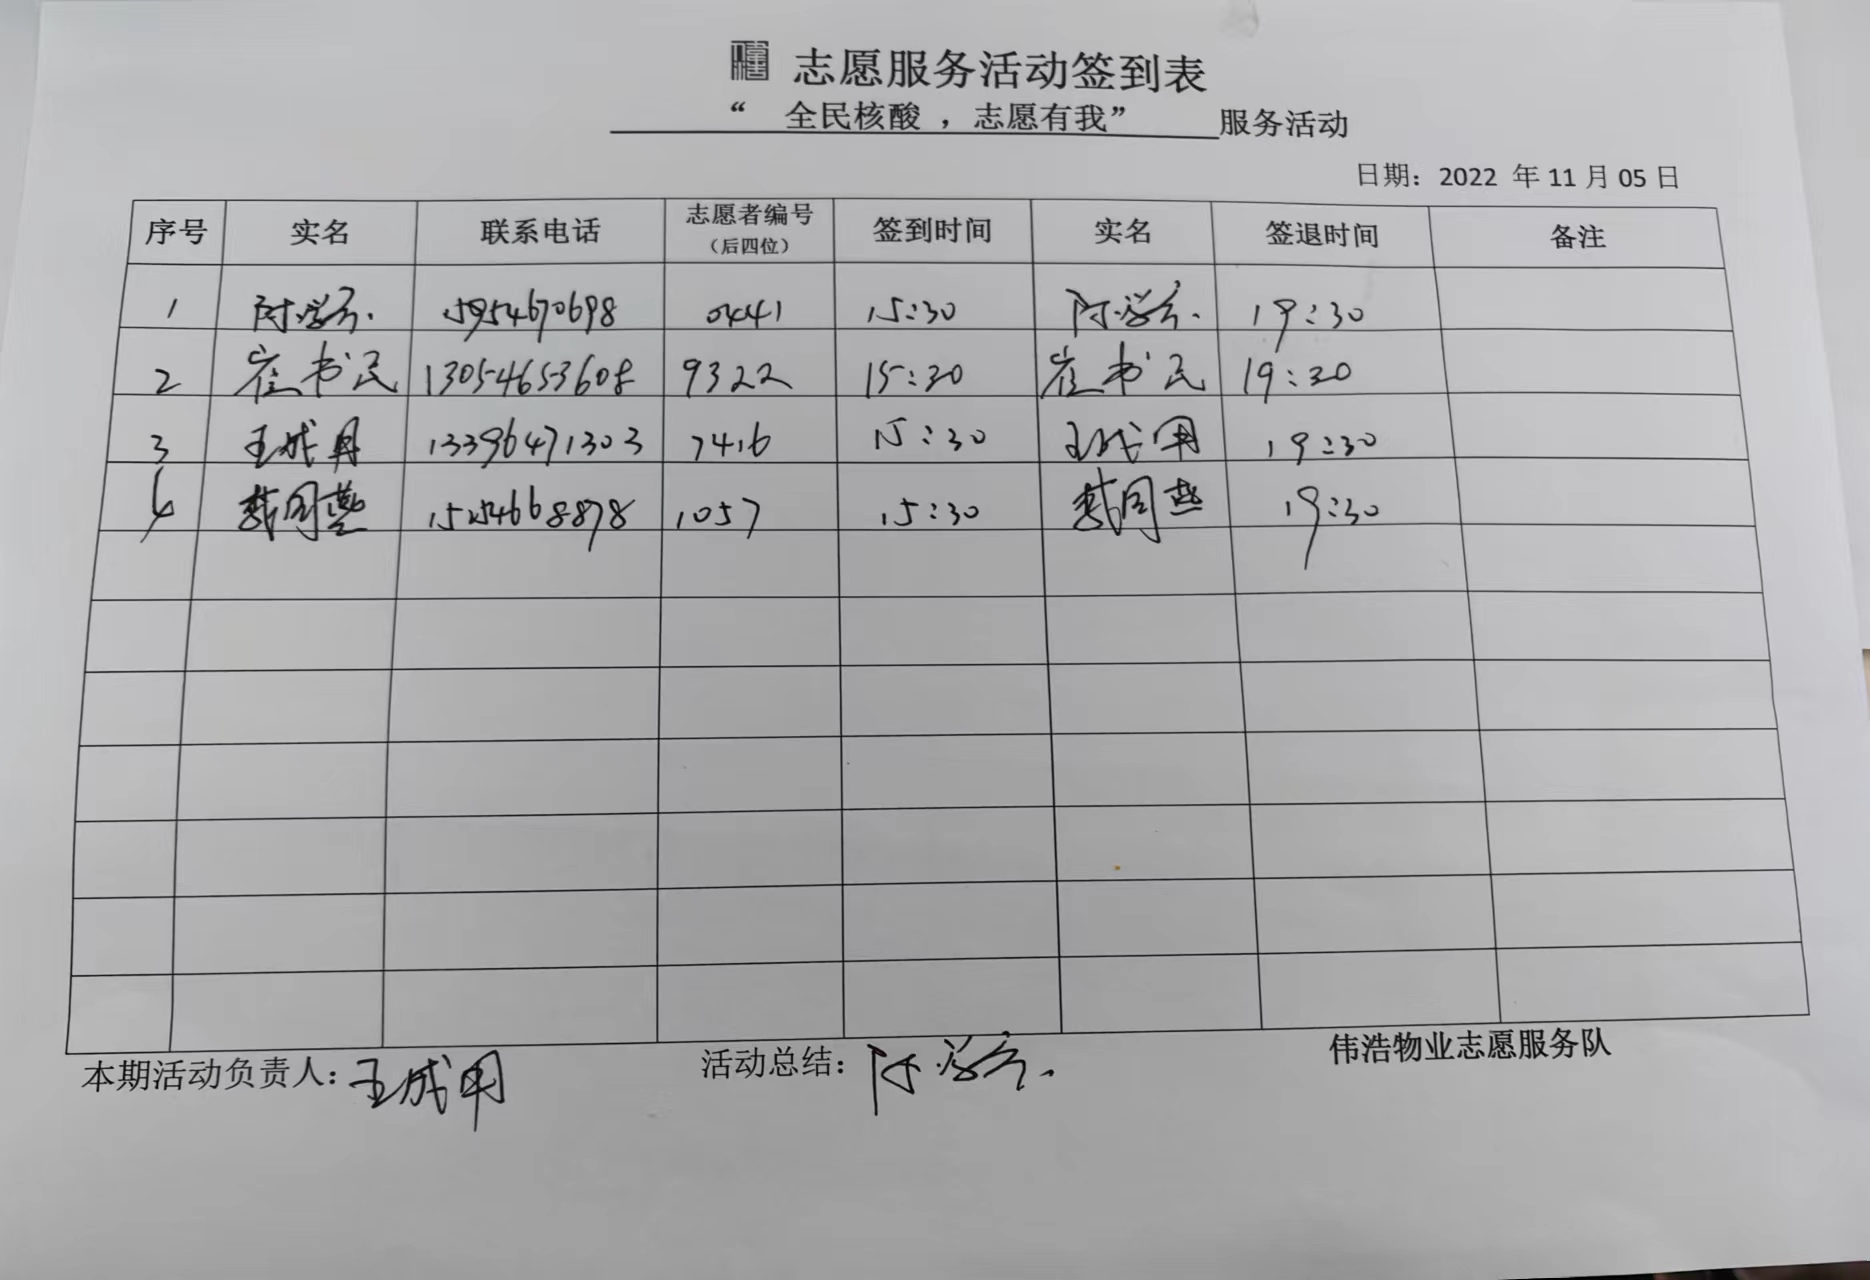 志愿服务活动签到表
“ 全民核酸 ，志愿有我” 服务活动
日期：2022 年 11 月 05 日
序号 实名 联系电话 志愿者编号（后四位） 签到时间 实名 签退时间 备注
1 15954670698 0441 15:30 19:30
2 崔书民 13054653608 9322 15:30 崔书民 19:30
3 王成用 13396471303 7416 15:30 王成用 19:30
4 戴同燕 15254668878 1057 15:30 戴同燕 19:30
本期活动负责人：王成用 活动总结： 伟浩物业志愿服务队